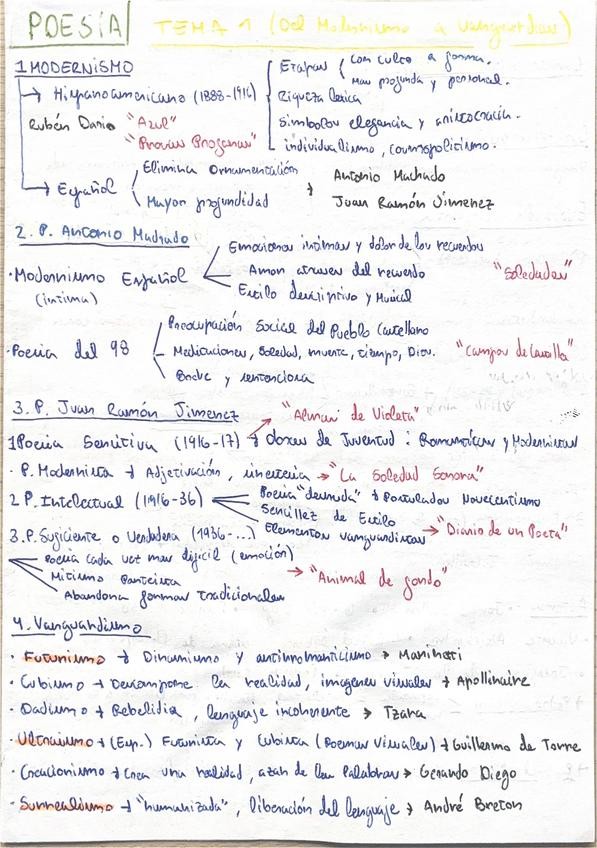 POESÍA TEMA 1 (Del Modernismo a Vanguardias)
1 MODERNISMO
→ Hispanoamericano (1888-1916)
Rubén Dario "Azul"
"Prosas Profanas"
Etapas con culto a forma.
Mas profunda y personal.
Riqueza lexica
Simbolos elegancia y aristocracia.
individualismo, cosmopolitismo.
→ Español
Elimina Ornamentación
Mayor profundidad
→ Antonio Machado
Juan Ramón Jimenez
2. P. Antonio Machado
· Modernismo Español
(intima)
Emociones intimas y dolor de los recuerdos
Amor atraves del recuerdo
Estilo descriptivo y Musical
"Soledades"
· Poesia del 98
Preocupación Social del Pueblo Castellano
Meditaciones, Soledad, muerte, tiempo, Dios.
Breve y sentenciosa
"Campos de Castilla"
3. P. Juan Ramón Jimenez
1 Poesia Sensitiva (1916-17) → obras de Juventud: Romanticas y Modernistas
"Almas de Violeta"
· P. Modernista → Adjetivación, sinestesia → "La Soledad Sonora"
2 P. Intelectual (1916-36)
Poesia "desnuda" → Postulados Novecentismo
Sencillez de Estilo
Elementos vanguardistas → "Diario de un Poeta"
3. P. Sugiciente o Verdadera (1936-...)
Poesia cada vez mas dificil (emoción)
Mitismo Panteista
Abandona formas tradicionales
→ "Animal de fondo"
4. Vanguardismo
· Futurismo → Dinamismo y antirromanticismo → Marinatti
· Cubismo → Descompone la realidad, imagenes visuales → Apollinaire
· Dadismo → Rebeldia, lenguaje incoherente → Tzara
· Ultraismo → (Esp.) Futurista y Cubista (Poemas Visuales) → Guillermo de Torre
· Creacionismo → Crea una realidad, azar de las Palabras → Gerardo Diego
· Surrealismo → "humanizada", liberación del lenguaje → André Breton